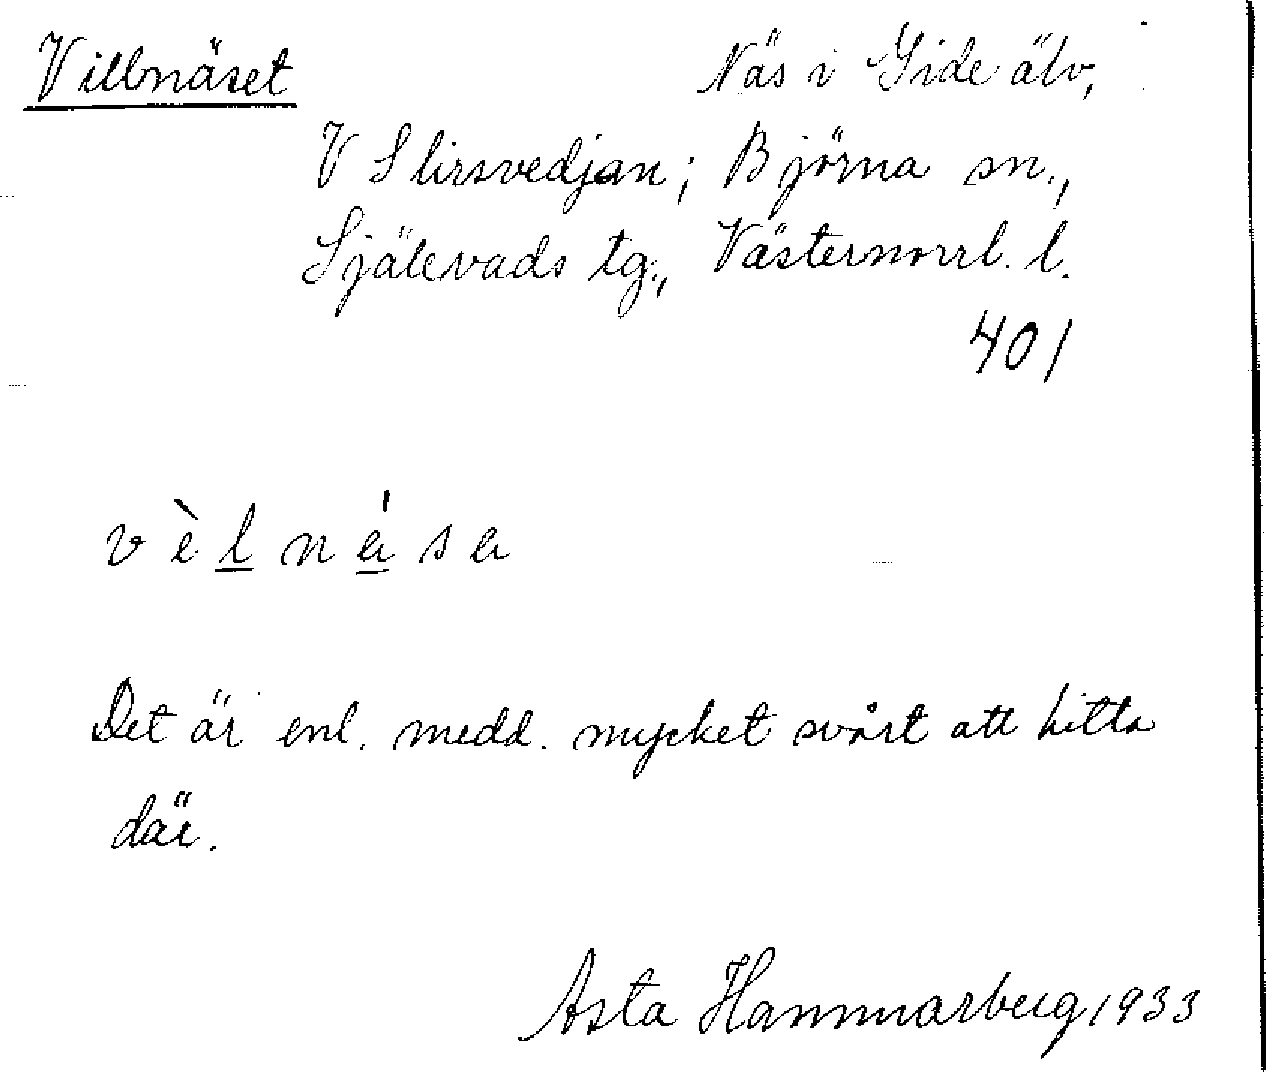 Villnäset
Näs i Gide älv,
V Slirsvedjan; Björna sn.,
Själevads tg., Västernorrl. l.
401
v è l n á s a
Det är enl. medd. mycket svårt att hitta
där.
Asta Hammarberg 1933